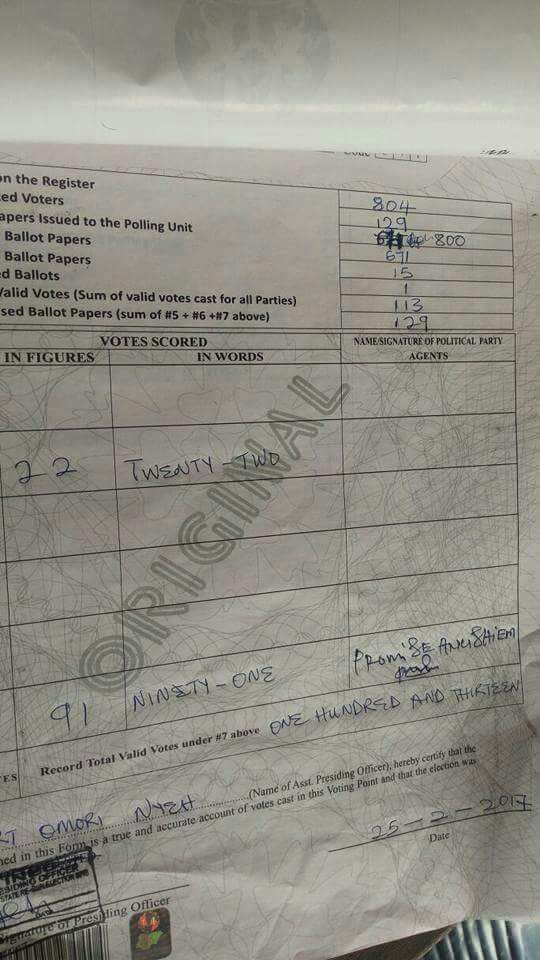 on the Register 804
ed Voters 129
apers Issued to the Polling Unit 800
Ballot Papers 671
Ballot Papers 15
ed Ballots 1
Valid Votes (Sum of valid votes cast for all Parties) 113
sed Ballot Papers (sum of #5 + #6 +#7 above) 129
VOTES SCORED
NAME/SIGNATURE OF POLITICAL PARTY AGENTS
IN FIGURES IN WORDS
22 TWENTY-TWO
ORIGINAL
91 NINETY-ONE PROMISE
Record Total Valid Votes under #7 above ONE HUNDRED AND THIRTEEN
OMORI NYEH (Name of Asst. Presiding Officer), hereby certify that the
ned in this Form is a true and accurate account of votes cast in this Voting Point and that the election was
25-2-2017
Date
Signature of Presiding Officer